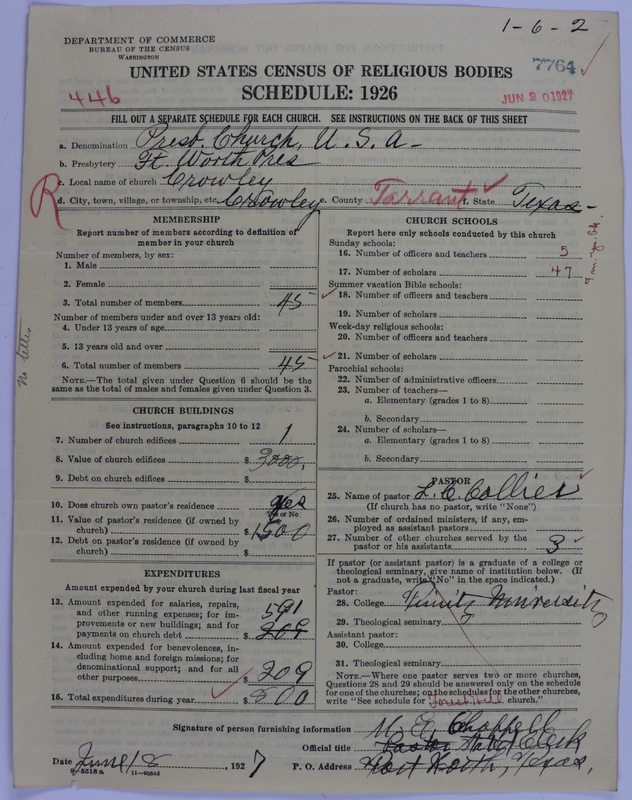 1-6-2
DEPARTMENT OF COMMERCE
BUREAU OF THE CENSUS
WASHINGTON
7764
UNITED STATES CENSUS OF RELIGIOUS BODIES
446
SCHEDULE: 1926
JUN 20 1927
FILL OUT A SEPARATE SCHEDULE FOR EACH CHURCH. SEE INSTRUCTIONS ON THE BACK OF THIS SHEET
a. Denomination Presb. Church, U. S. A-
b. Presbytery Ft. Worth Pres
c. Local name of church Crowley
R
d. City, town, village, or township, etc. Crowley e. County Tarrant f. State Texas-
MEMBERSHIP
Report number of members according to definition of
member in your church
Number of members, by sex:
1. Male
2. Female
3. Total number of members 45
Number of members under and over 13 years old:
4. Under 13 years of age
5. 13 years old and over
6. Total number of members 45
NOTE.—The total given under Question 6 should be the
same as the total of males and females given under Question 3.
No letter
CHURCH BUILDINGS
See instructions, paragraphs 10 to 12
7. Number of church edifices 1
8. Value of church edifices $ 3000.
9. Debt on church edifices $
10. Does church own pastor's residence yes
Yes or No
11. Value of pastor's residence (if owned by
church) $ 1500
12. Debt on pastor's residence (if owned by
church) $
EXPENDITURES
Amount expended by your church during last fiscal year
13. Amount expended for salaries, repairs,
and other running expenses; for im-
provements or new buildings; and for
payments on church debt $ 591 209
14. Amount expended for benevolences, in-
cluding home and foreign missions; for
denominational support; and for all
other purposes $ 209
15. Total expenditures during year $ 800
CHURCH SCHOOLS
Report here only schools conducted by this church
Sunday schools:
16. Number of officers and teachers 5
17. Number of scholars 47
Summer vacation Bible schools:
18. Number of officers and teachers
19. Number of scholars
Week-day religious schools:
20. Number of officers and teachers
21. Number of scholars
Parochial schools:
22. Number of administrative officers
23. Number of teachers—
a. Elementary (grades 1 to 8)
b. Secondary
24. Number of scholars—
a. Elementary (grades 1 to 8)
b. Secondary
PASTOR
25. Name of pastor L. C. Collier
(If church has no pastor, write "None")
26. Number of ordained ministers, if any, em-
ployed as assistant pastors
27. Number of other churches served by the
pastor or his assistants 3
If pastor (or assistant pastor) is a graduate of a college or
theological seminary, give name of institution below. (If
not a graduate, write "No" in the space indicated.)
Pastor:
28. College Trinity University
29. Theological seminary
Assistant pastor:
30. College
31. Theological seminary
NOTE.—Where one pastor serves two or more churches,
Questions 28 and 29 should be answered only on the schedule
for one of the churches; on the schedules for the other churches,
write "See schedule for Forest Hill church."
Signature of person furnishing information M. E. Chappell
Official title Pastor Stated Clerk
Date June 18, 1927 P. O. Address Fort Worth, Texas,
8-5518a 11-90344